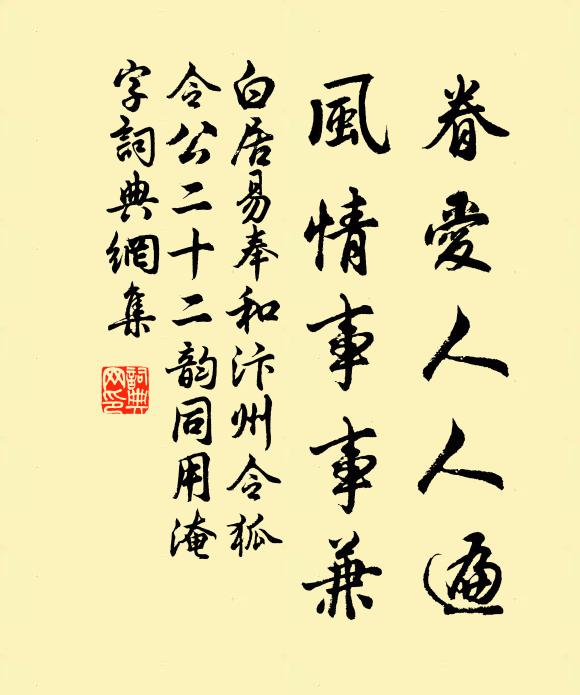 眷愛人人遍
風情事事兼
白居易奉和汴州令狐
令公二十二韵同用淹
字詞典網集
詞典
网印